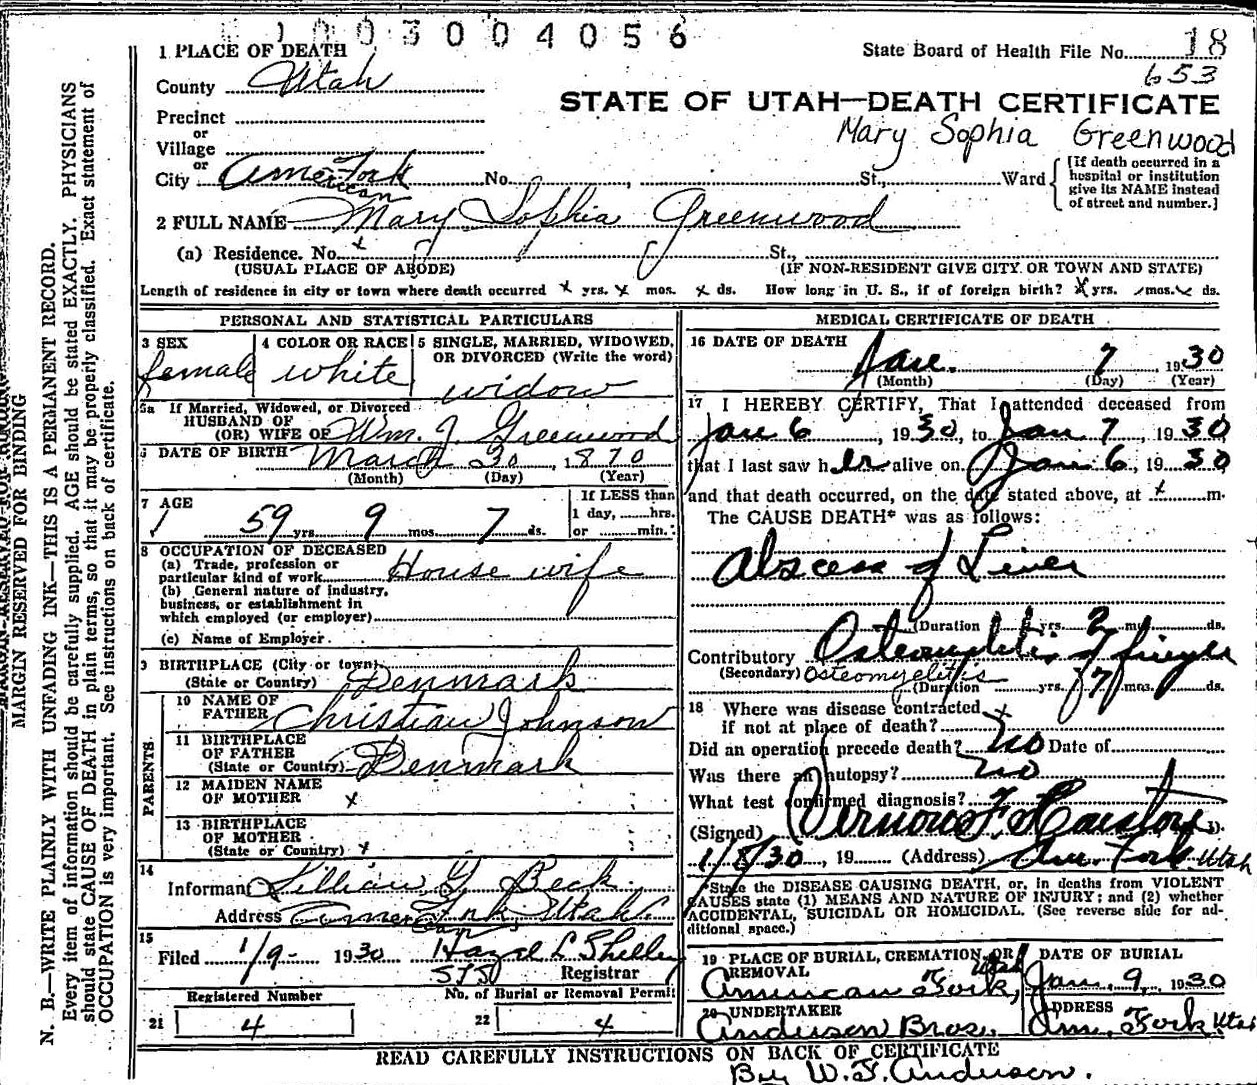 1003004056
1 PLACE OF DEATH
State Board of Health File No. 18
653
County Utah
STATE OF UTAH—DEATH CERTIFICATE
Mary Sophia Greenwood
Precinct
or
Village
or
City Amer Fork No. , St., Ward
erican
[If death occurred in a
hospital or institution
give its NAME instead
of street and number.]
2 FULL NAME Mary Sophia Greenwood
(a) Residence. No. x St.,
(USUAL PLACE OF ABODE) (IF NON-RESIDENT GIVE CITY OR TOWN AND STATE)
Length of residence in city or town where death occurred x yrs. x mos. x ds. How long in U. S., if of foreign birth? x yrs. mos. ds.
PERSONAL AND STATISTICAL PARTICULARS
3 SEX
female
4 COLOR OR RACE
white
5 SINGLE, MARRIED, WIDOWED,
OR DIVORCED (Write the word)
widow
5a If Married, Widowed, or Divorced
HUSBAND OF
(OR) WIFE OF Wm. J. Greenwood
DATE OF BIRTH March 30, 1870
(Month) (Day) (Year)
7 AGE
59 yrs 9 mos. 7 ds.
If LESS than
1 day, hrs.
or min.
8 OCCUPATION OF DECEASED
(a) Trade, profession or
particular kind of work House wife
(b) General nature of industry,
business, or establishment in
which employed (or employer)
(c) Name of Employer.
9 BIRTHPLACE (City or town)
(State or Country) Denmark
PARENTS
10 NAME OF
FATHER Christian Johnson
11 BIRTHPLACE
OF FATHER
(State or Country) Denmark
12 MAIDEN NAME
OF MOTHER x
13 BIRTHPLACE
OF MOTHER
(State or Country) x
14
Informant Lillian G. Beck
Address American Fork Utah
15
Filed 1/9- 1930 Hazel L Shelley
Registrar
Registered Number
21 4
No. of Burial or Removal Permit
22 4
MEDICAL CERTIFICATE OF DEATH
16 DATE OF DEATH
Jan. 7 1930
(Month) (Day) (Year)
17 I HEREBY CERTIFY, That I attended deceased from
Jan 6, 1930, to Jan 7, 1930
that I last saw her alive on Jan 6, 1930
and that death occurred, on the date stated above, at x m.
The CAUSE DEATH* was as follows:
Abscess of Liver
(Duration yrs. 2 mos. ds.
Contributory Osteomyelitis of finger
(Secondary) Osteomyelitis
(Duration yrs. 7 mos. ds.
18 Where was disease contracted
if not at place of death? x
Did an operation precede death? no Date of
Was there an autopsy? no
What test confirmed diagnosis?
(Signed) Vernon F. Houston
1/8/30, 19 (Address) Am. Fork Utah
*State the DISEASE CAUSING DEATH, or, in deaths from VIOLENT
CAUSES state (1) MEANS AND NATURE OF INJURY; and (2) whether
ACCIDENTAL, SUICIDAL OR HOMICIDAL. (See reverse side for ad-
ditional space.)
19 PLACE OF BURIAL, CREMATION, OR
REMOVAL
American Fork, Utah
DATE OF BURIAL
Jan. 9, 1930
20 UNDERTAKER
Anderson Bros.
ADDRESS
Am. Fork Utah
READ CAREFULLY INSTRUCTIONS ON BACK OF CERTIFICATE
By W. J. Anderson.
MARGIN RESERVED FOR BINDING
N. B.—WRITE PLAINLY WITH UNFADING INK—THIS IS A PERMANENT RECORD.
Every item of information should be carefully supplied. AGE should be stated EXACTLY. PHYSICIANS
should state CAUSE OF DEATH in plain terms, so that it may be properly classified. Exact statement of
OCCUPATION is very important. See instructions on back of certificate.